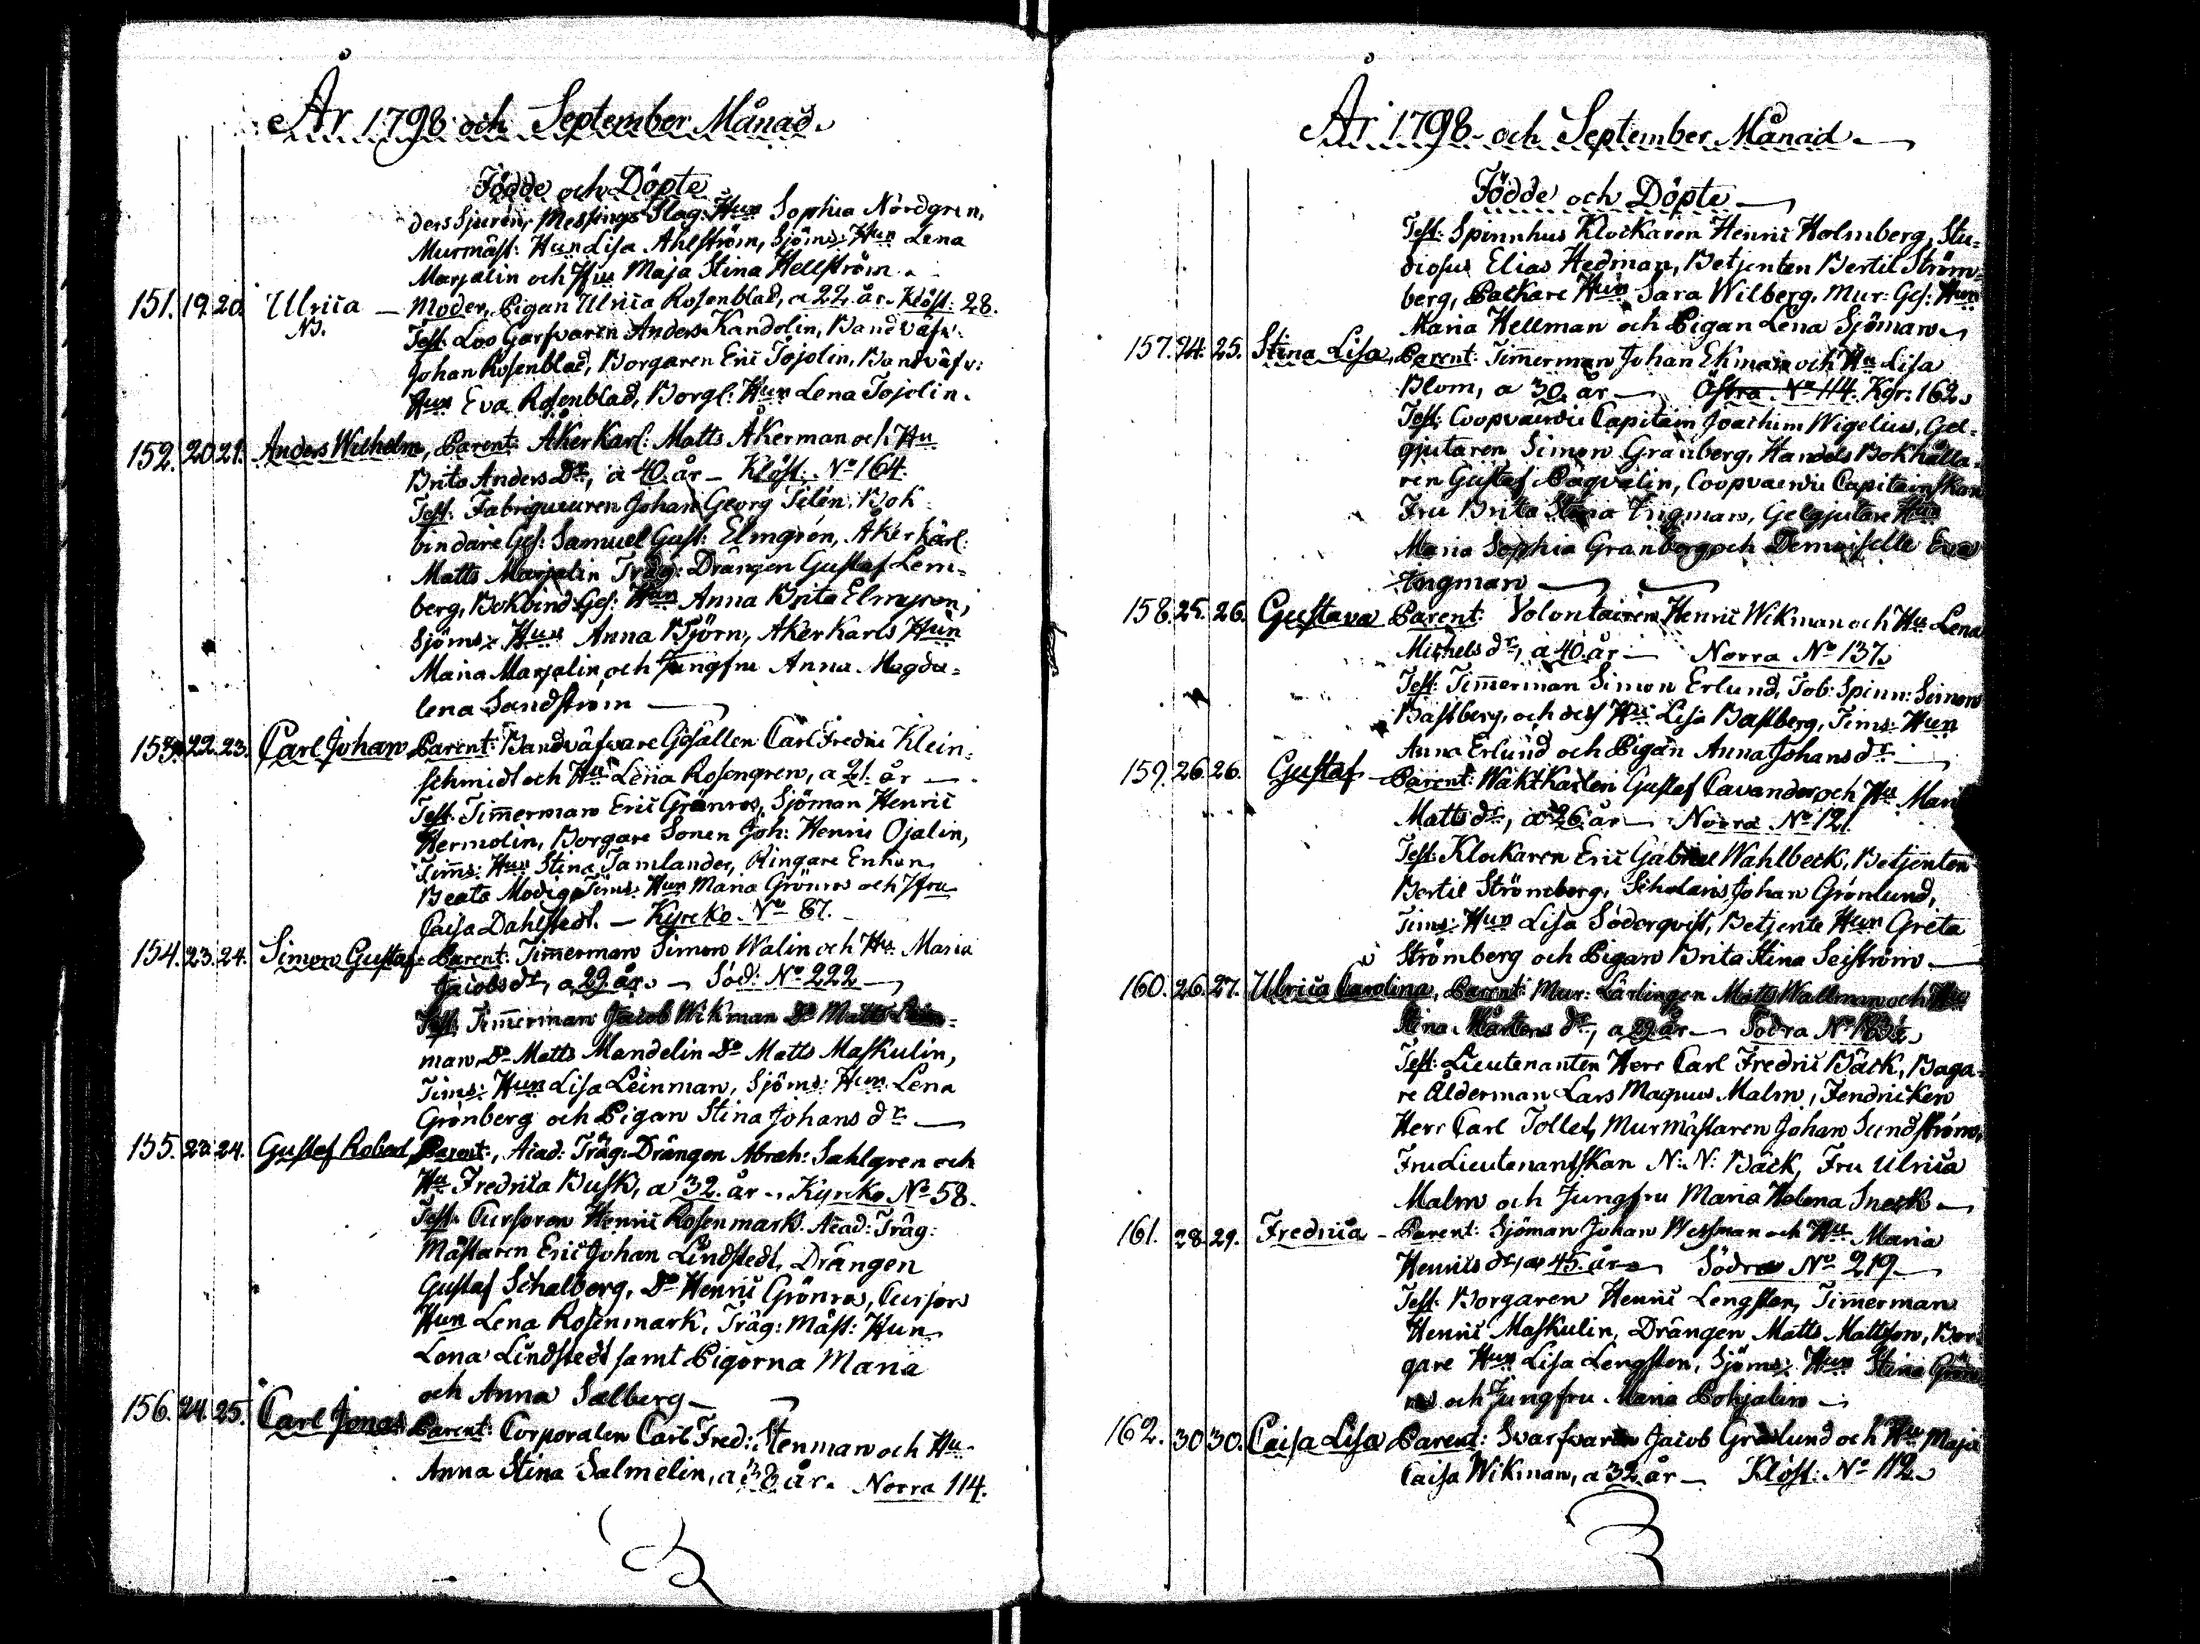 År 1798 och September Månad.
Födde och Döpte
ders Sjuren, Messings Slag: Hun Sophia Nordgren,
Murmäst: Hun Lisa Ahlström, Sjöms: Hun Lena
Marjalin och Jfru Maja Stina Hellström.
151. 19. 20. Ulrica — Moder, Pigan Ulrica Rosenblad, a 22 år. Klöst: 28.
NB. Test: Loo Garfvaren Anders Kandolin, Bandväfv:
Johan Rosenblad, Borgaren Eric Tojolin, Bandväfv:
Hun Eva Rosenblad, Borgl: Hun Lena Tojolin.
152. 20. 21. Anders Wilhelm, Parent: Åker Karl: Matts Åkerman och Hu
Brita Anders Dr, a 40 år — Klöst: No 164.
Test: Fabriqueuren Johan Georg Tilén. Bok
bindare Ges: Samuel Gust: Elmgrén, Åker Karl:
Matts Marjalin Träg: Drängen Gustaf Lem=
berg, Bokbind Ges: Hun Anna Brita Elmgren,
Sjöms: Hun Anna Björn, Åker Karls Hun
Maria Marjalin och Jungfru Anna Magda=
lena Sandström —
153. 22. 23. Carl Johan Parent: Bandväfvare Gesällen Carl Fredric Klein=
schmidt och Hu Lena Rosengren, a 21 år —
Test: Timerman Eric Grönros, Sjöman Henric
Hermolin, Borgare Sonen Joh: Henric Ojalin,
Tims: Hun Stina Tamlander, Ringare Enkan
Beata Modig, Tims: Hun Maria Grönros och Jfru
Caisa Dahlstedt. — Kyrcko No 87.
154. 23. 24. Simon Gustaf Parent: Timerman Simon Walin och Hu Maria
Jacobs dr, a 29 år. — Söd: No 222 —
Test: Timerman Jacob Wikman Do Matts
man, Do Matts Mandelin Do Matts Maskulin,
Tims: Hun Lisa Leinman, Sjöms: Hun Lena
Grönberg och Pigan Stina Johans dr —
155. 23. 24. Gustaf Robert Parent: Acad: Träg: Drängen Abrah: Sahlgren och
Hu Fredrica Busk, a 32 år. Kyrcko No 58.
Test: Cursoren Henric Rosenmark. Acad: Träg:
Mästaren Eric Johan Lindstedt, Drängen
Gustaf Schalberg, Do Henric Grönros, Cursors
Hun Lena Rosenmark, Träg: Mäst: Hun
Lena Lindstedt samt Pigorna Maria
och Anna Salberg —
156. 24. 25. Carl Jonas Parent: Corporalen Carl Fred: Stenman och Hu
Anna Stina Salmelin, a 38 år. Norra 114.
År 1798 och September Månad. —
Födde och Döpte —
Test: Spinnhus Klockaren Henric Holmberg, Stu=
diosus Elias Hedman, Betjenten Bertil Ström=
berg, Packare Hun Sara Wilberg, Mur: Ges: Hun
Maria Hellman och Pigan Lena Sjöman.
157. 24. 25. Stina Lisa, Parent: Timerman Johan Ekman och Hu Lisa
Blom, a 30 år — Östra No 114. Kgr: 162.
Test: Coopvaerdie Capitain Joachim Wigelius, Gel=
gjutaren Simon Granberg, Handels Bokhålla=
ren Gustaf Pagvalin, Coopvaerdie Capitainskan
Fru Brita Stina Ingman, Gelgjutare Hun
Maria Sophia Granberg och Demoiselle Eva
Ingman —
158. 25. 26. Gustava Parent: Volontairen Henric Wikman och Hu Lena
Michels dr, a 40 år — Norra No 137.
Test: Timerman Simon Erlund, Tob: Spinn: Simon
Bastberg, och dess Hu Lisa Bastberg, Tims: Hun
Anna Erlund och Pigan Anna Johans dr —
159. 26. 26. Gustaf — Parent: WaktKarlen Gustaf Cavander och Hu Mari
Matts dr, a 26 år — Norra No 121.
Test: Klockaren Eric Gabriel Wahlbeck, Betjenten
Bertil Strömberg, Scholaris Johan Grönlund,
Tims: Hun Lisa Söderqvist, Betjente Hun Greta
Strömberg och Pigan Brita Stina Seiström —
160. 26. 27. Ulrica Carolina, Parent: Mur: Lärlingen Matts Wallman och Hu
Stina Mårtens dr, a 29 år — Södra No
Test: Lieutenanten Herr Carl Fredric Bäck, Baga=
re Ålderman Lars Magnus Malm, Fendricken
Herr Carl Tollet, Murmästaren Johan Sundström,
Fru Lieutenantskan N: N: Bäck, Fru Ulrica
Malm och Jungfru Maria Helena Sneck —
161. 28. 29. Fredrica — Parent: Sjöman Johan Wessman och Hu Maria
Henrics dr, a 45 år — Södra No 219 —
Test: Borgaren Henric Lengsten, Timerman
Henric Maskulin, Drängen Matts Mattson, Bor=
gare Hun Lisa Lengsten, Sjöms: Hun Stina Grön
ros och Jungfru Maria Pohjalin —
162. 30. 30. Caisa Lisa Parent: Svarfvaren Jacob Grönlund och Hu Maja
Caisa Wikman, a 32 år — Klöst: No 112.